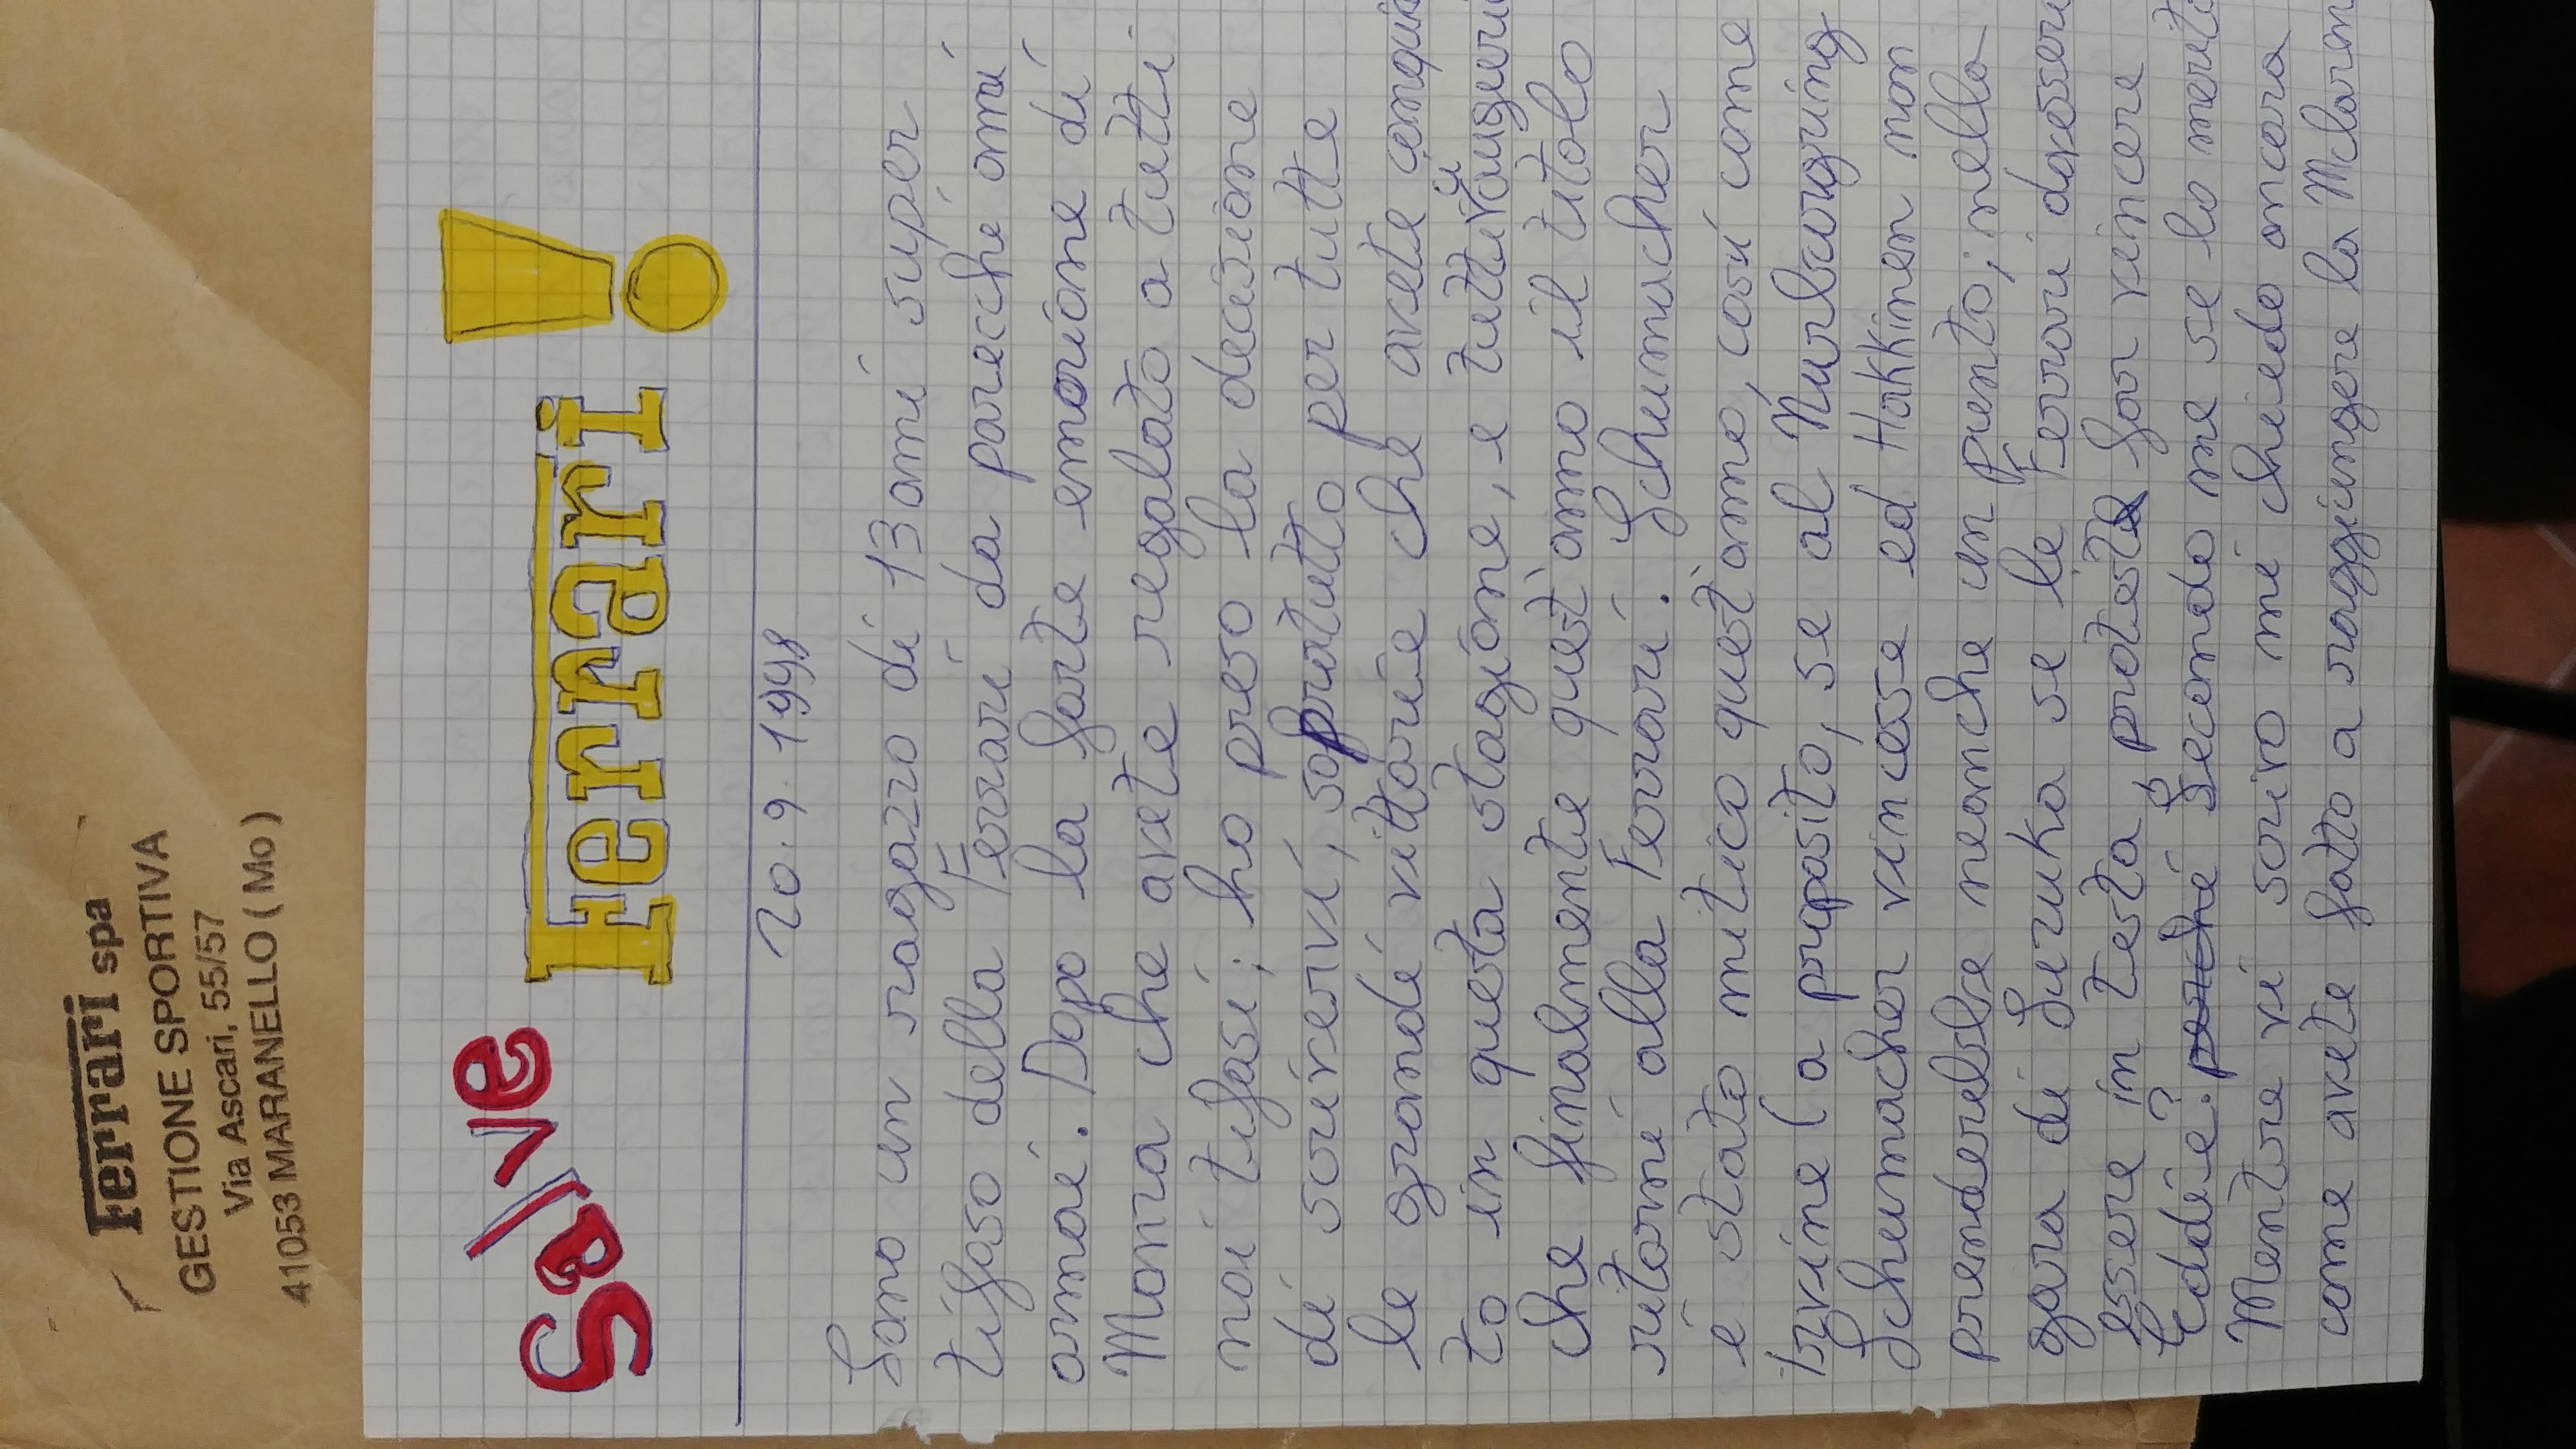 Ferrari spa
GESTIONE SPORTIVA
Via Ascari, 55/57
41053 MARANELLO (Mo)
Salve Ferrari!
20.9.1998
Sono un ragazzo di 13 anni super
tifoso della Ferrari da parecchi anni
ormai. Dopo la forte emozione di
Monza che avete regalato a tutti
noi tifosi; ho preso la decisione
di scrivervi, sopratutto per tutte
le grandi vittorie che avete conquis
to in questa stagione, e tutti vi auguri
che finalmente quest'anno il titolo
ritorni alla Ferrari. Schumacher
è stato mitico quest'anno, così come
Irvine (a proposito, se al Nurburgring
Schumacher vincesse ed Hakkinen non
prenderebbe neanche un punto; nella
gara di Suzuka se le Ferrari dovesser
essere in testa, potete far vincere
Eddie? perché secondo me se lo merit
Mentre vi scrivo mi chiedo ancora
come avete fatto a raggiungere la Mclaren